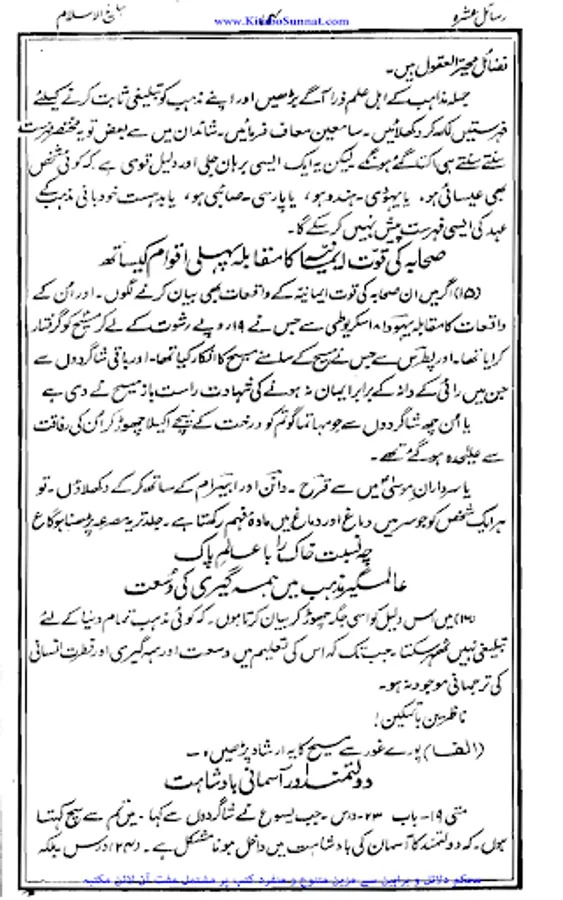 رسائل عشرہ
www.KitaboSunnat.com
تبلیغ الاسلام
فضائل محیر العقول ہیں۔
جملہ مذاہب کے اہل علم ذرا آگے بڑھیں اور اپنے مذہب کو تبلیغی ثابت کرنے کیلئے
فہرستیں لکھ کر دکھلائیں۔ سامعین معاف فرمائیں۔ شاید ان میں سے بعض تو یہ مختصر فہرست
سنتے سنتے ہی اکتا گئے ہونگے لیکن یہ ایک ایسی برہان جلی اور دلیل قوی ہے کہ کوئی شخص
بھی عیسائی ہو، یا یہودی۔ ہندو ہو، یا پارسی۔ صائبی ہو، یا بدہست خود بانی مذہب کے
عہد کی ایسی فہرست پیش نہیں کر سکے گا۔
صحابہ کی قوت ایمانیہ کا مقابلہ پہلی اقوام کیساتھ
(۱۵) اگر میں ان صحابہ کی قوت ایمانیہ کے واقعات بھی بیان کرنے لگوں۔ اور اُن کے
واقعات کا مقابلہ یہوداہ اسکریوطی سے جس نے ۱۹ روپے رشوت کے لے کر مسیح کو گرفتار
کرایا تھا۔ اور پطرس سے جس نے مسیح کے سامنے مسیح کا انکار کیا تھا۔ اور باقی شاگردوں سے
جن میں رائی کے دانہ کے برابر ایمان نہ ہونے کی شہادت راست باز مسیح نے دی ہے
یا اُن چھ شاگردوں سے جو مہاتما گوتم کو درخت کے نیچے اکیلا چھوڑ کر اُن کی رفاقت
سے علیحدہ ہو گئے تھے۔
یا سرداران موسیٰ میں سے قرح۔ داتن اور ابیرام کے ساتھ کر کے دکھلاؤں۔ تو
ہر ایک شخص کو جو سر میں دماغ اور دماغ میں مادۂ فہم رکھتا ہے۔ جلد تر یہ مصرعہ پڑھنا ہوگا ع
چہ نسبت خاک را با عالم پاک
عالمگیر مذہب میں ہمہ گیری کی وُسعت
(۱۶) میں اس دلیل کو اسی جگہ چھوڑ کر بیان کرتا ہوں۔ کہ کوئی مذہب تمام دنیا کے لئے
تبلیغی نہیں ٹھہر سکتا۔ جب تک کہ اس کی تعلیم میں وسعت اور ہمہ گیری اور فطرت انسانی
کی ترجمانی موجود نہ ہو۔
ناظرین باتمکین!
(الف) پورے غور سے مسیح کا یہ ارشاد پڑھیں۔
دولتمند اور آسمانی بادشاہت
متی ۱۹۔ باب ۲۳۔ درس۔ جب یسوع نے شاگردوں سے کہا۔ میں تم سے سچ کہتا
ہوں۔ کہ دولتمند کا آسمان کی بادشاہت میں داخل ہونا مشکل ہے۔ (۲۴) درس بلکہ
محکم دلائل و براہین سے مزین متنوع و منفرد کتب پر مشتمل مفت آن لائن مکتبہ